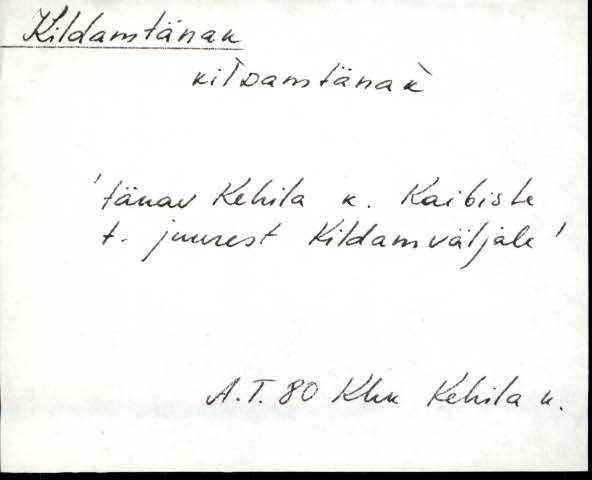 Kildamtänak
kil̀Damtänak̀
'tänav Kehila k. Kaibiste
t. juurest Kildamväljale'
A.T. 80 Khk Kehila k.